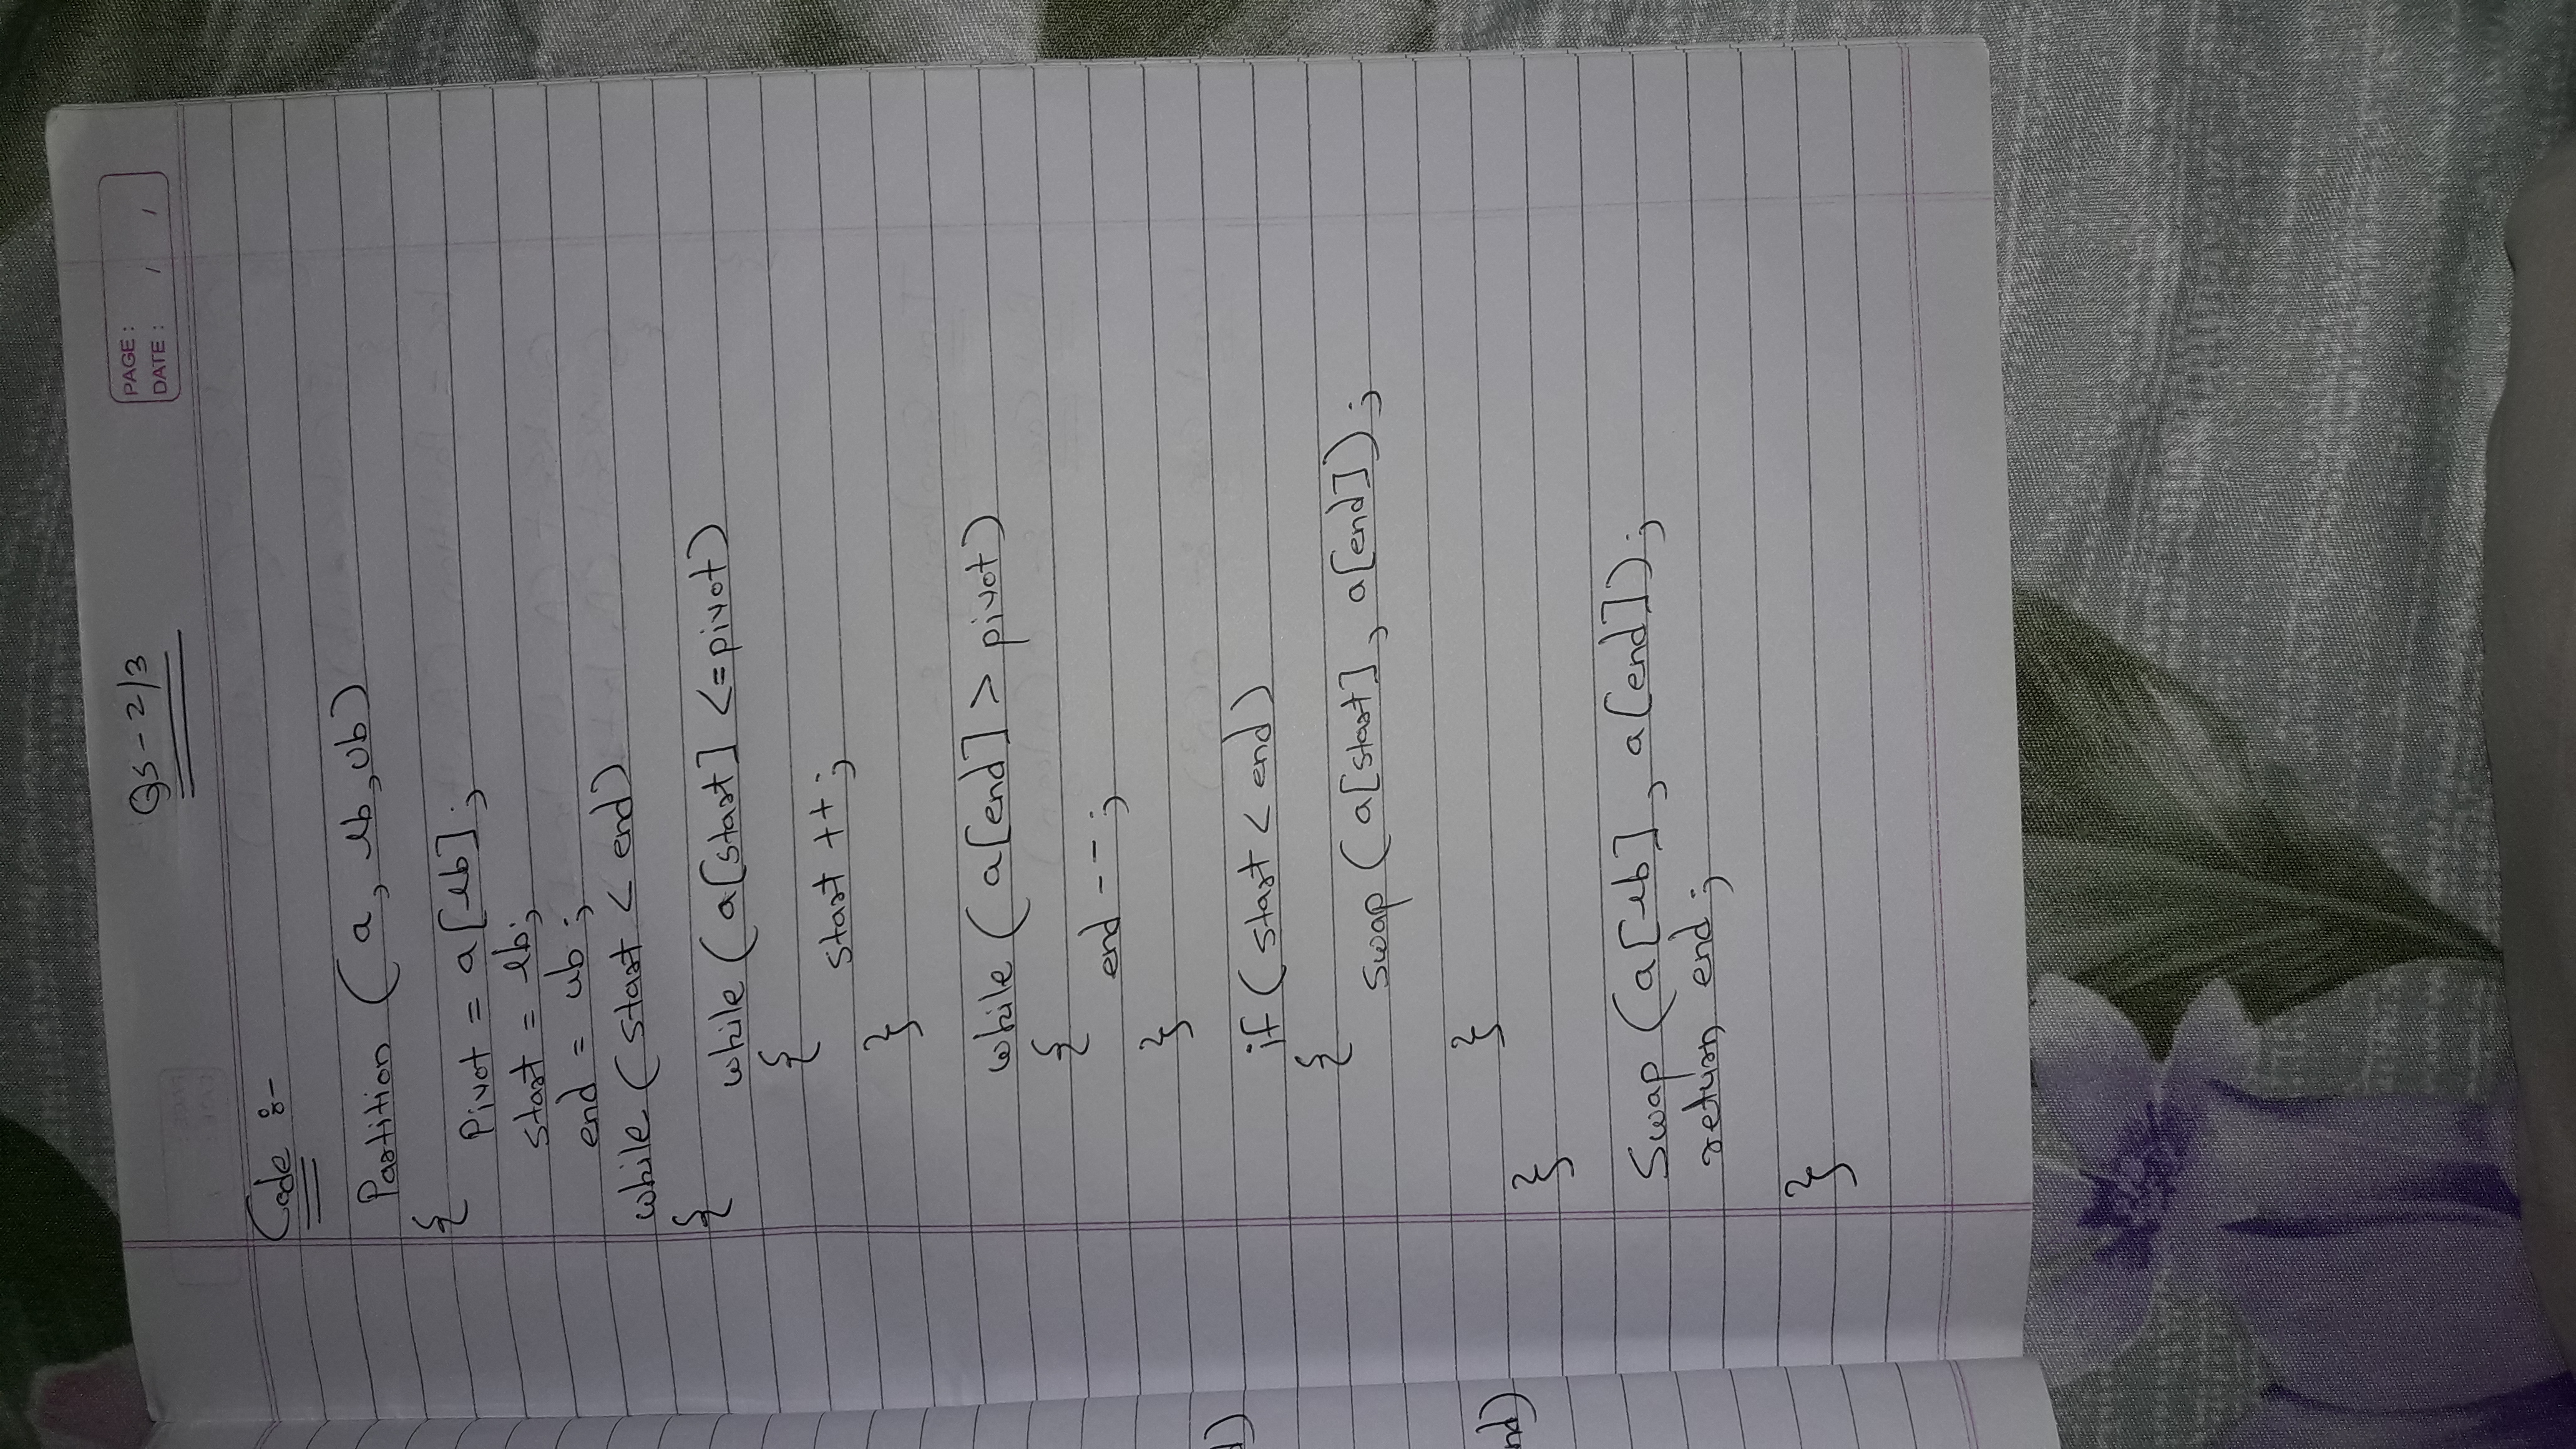 QS-2/3
PAGE :
DATE : / /
Code :-
Partition (a, lb, ub)
{
Pivot = a[lb];
start = lb;
end = ub;
while (start < end)
{
while (a[start] <= pivot)
{
start ++;
}
while (a[end] > pivot)
{
end --;
}
if (start < end)
{
Swap (a[start], a[end]);
}
}
Swap (a[lb], a[end]);
return end;
}